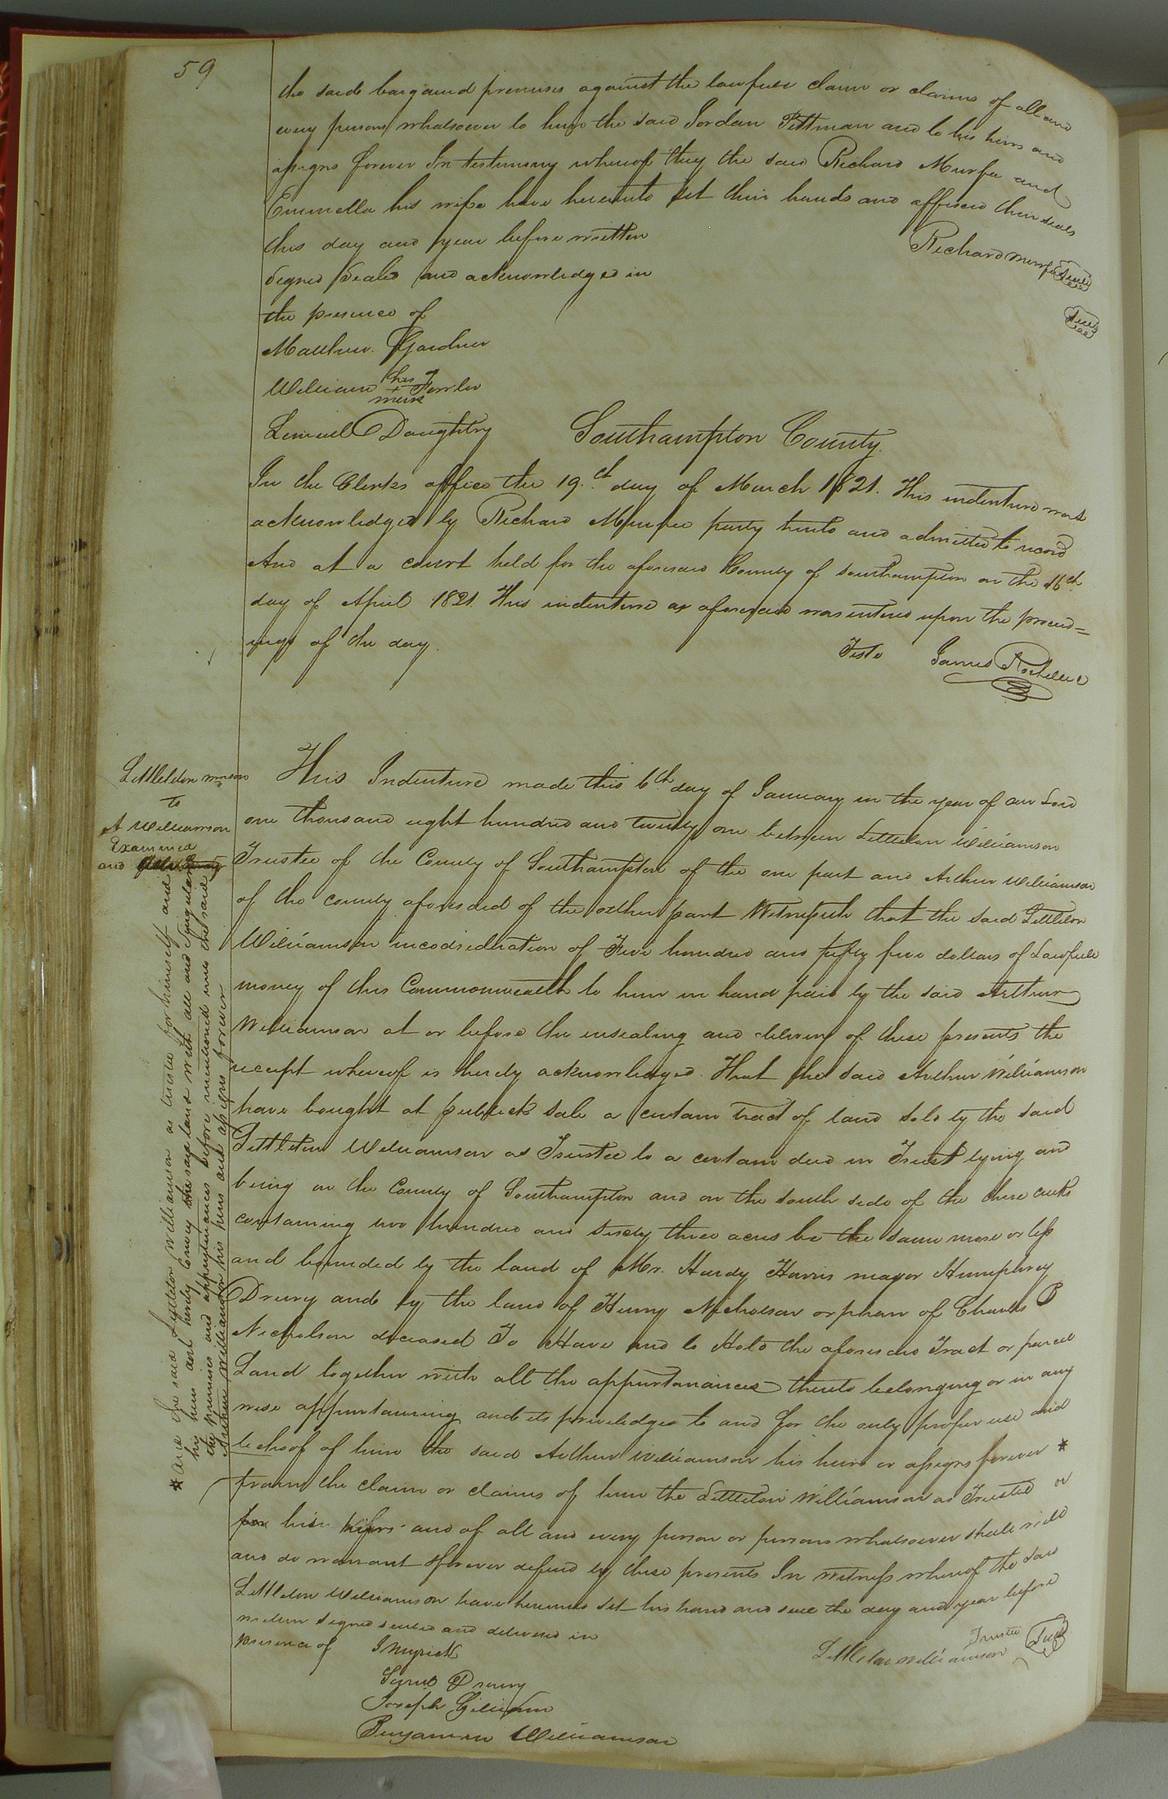 59
the said bargaind premises against the lawfull claim or claims of all and
every persons whatsoever to him the said Jordan Pittman and to his heirs and
assigns forever In testimony whereof they the said Richard Murfee and
Emmella his wife have hereunto set their hands and affixed their seals
this day and year before written
Richard Murfee Seal
Signed Sealed and acknowledged in
the presence of
Seal
Matthew Gardner
William his + mark Fowler
Lemuel Daughtry
Southampton County
In the Clerks office the 19th day of March 1821. This indenture was
acknowledged by Richard Murfee party hereto and admitted to record
And at a court held for the aforesaid County of Southampton on the 16th
day of April 1821 This indenture as aforesaid was entered upon the proceed=
ings of the day.
Teste James Rochelle
Littleton
to
A Williamson
Examined
and
This Indenture made this 6th day of January in the year of our Lord
one thousand eight hundred and twenty one between Littleton Williamson
Trustee of the County of Southampton of the one part and Arthur Williamson
of the county aforesaied of the other part Witnesseth that the said Littleton
Williamson incodsideration of Five hundred and fifty five dollars of Lawfull
money of this Commonwealth to him in hand paid by the said Arthur
Williamson at or before the ensealing and delivery of these presents the
receipt whereof is hereby acknowledged. That the said Arthur Williamson
have bought at publick sale a certain tract of land sold by the said
Littleton Williamson as Trustee to a certain deed in Trust lying and
being in the County of Southampton and on the south side of the three creeks
containing two hundred and sixty three acres be the same more or less
and bounded by the land of Mr. Hardy Harris mayor Humphrey
Drewry and by the land of Henry Nicholson orphan of Charles P
Nicholson deceased To Have and to Hold the aforesaid Tract or parcel
Land together with all the appurtanances thereto belonging or in any
wise appurtaining and its priviledges to and for the only proper use and
behoof of him the said Arthur Williamson his heirs or assigns forever *
from the claim or claims of him the Littleton Williamson as Trustee or
for his heirs and of all and every person or persons whatsoever shall will
and do warrant & forever defend by these presents In witness whereof the said
Littleton Williamson have hereunto set his hand and seal the day and year before
written Signed sealed and delivered in
presence of
Littleton Williamson Trustee Seal
J Myrick
Drewry
Joseph Gilliam
Benjamin Williamson
* and the said Littleton Williamson as trustee for himself and
his heirs doth hereby convey the said land with all and singular
the premises and appurtenances before mentioned unto the said
Arthur Williamson his heirs and assigns forever